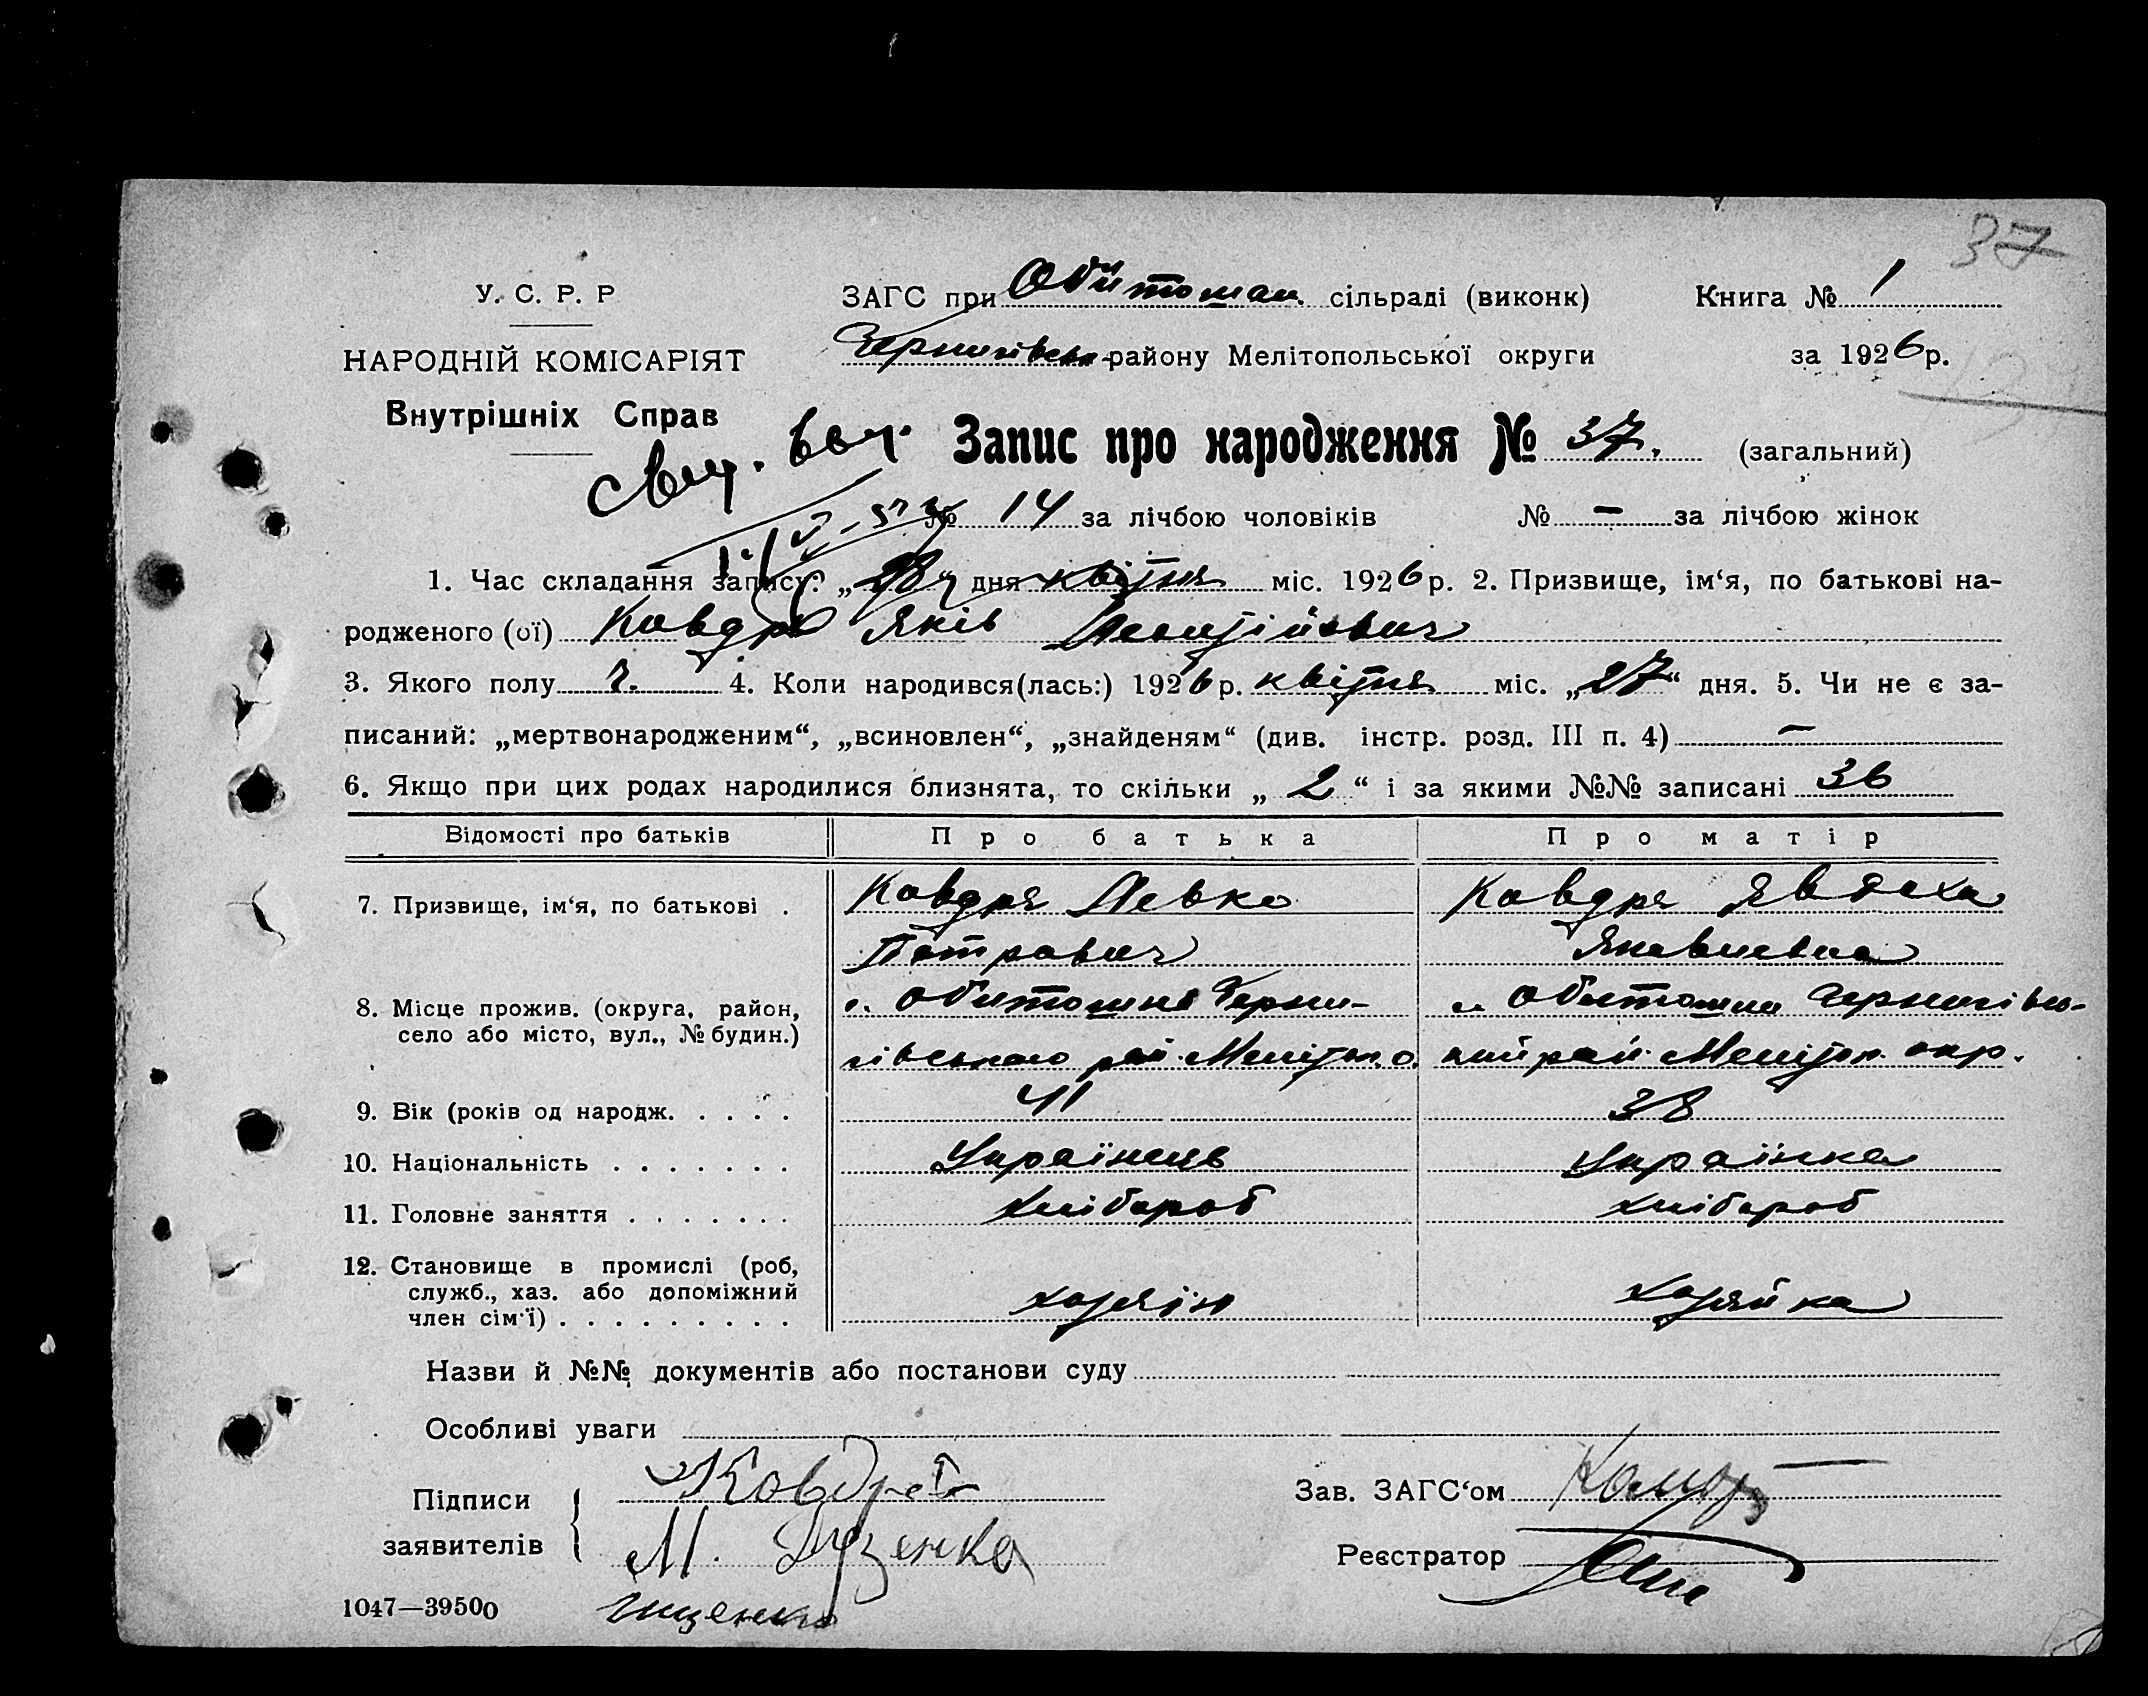 37
У. С. Р. Р
НАРОДНІЙ КОМІСАРІЯТ
Внутрішніх Справ
ЗАГС при Обитошан. сільраді (виконк)
Чернигівсько- району Мелітопольської округи
Книга № 1
за 1926 р.
Запис про народження № 37. (загальний)
№ 14 за лічбою чоловіків № — за лічбою жінок
1. Час складання запису: „28“ дня квітня міс. 1926 р. 2. Призвище, ім‘я, по батькові на-
родженого (ої) Ковдря Яків
3. Якого полу ч. 4. Коли народився(лась:) 1926 р. квітня міс. „27“ дня. 5. Чи не є за-
писаний: „мертвонародженим“, „всиновлен“, „знайденям“ (див. інстр. розд. III п. 4) —
6. Якщо при цих родах народилися близнята, то скільки „ 2 “ і за якими №№ записані 36
Відомості про батьків Про батька Про матір
7. Призвище, ім‘я, по батькові . Ковдря Левко Ковдря Явдоха
Петрович Яковлевна
8. Місце прожив. (округа, район, с. Обитошне Черни- с. Обитошне Чернигівсь-
село або місто, вул., № будин.) гівського рай. Меліtоп. о. кий рай. Меліtоп. окр.
9. Вік (років од народж. . . . . 41 38
10. Національність . . . . . . . Українець Українка
11. Головне заняття . . . . . . . хлібороб хлібороб
12. Становище в промислі (роб,
служб., хаз. або допоміжний хозяїн хозяйка
член сім‘ї) . . . . . . . . .
Назви й №№ документів або постанови суду
Особливі уваги
Підписи Ковдря Зав. ЗАГС‘ом
заявителів М. Луценко Реєстратор
1047—39500 Іщенко